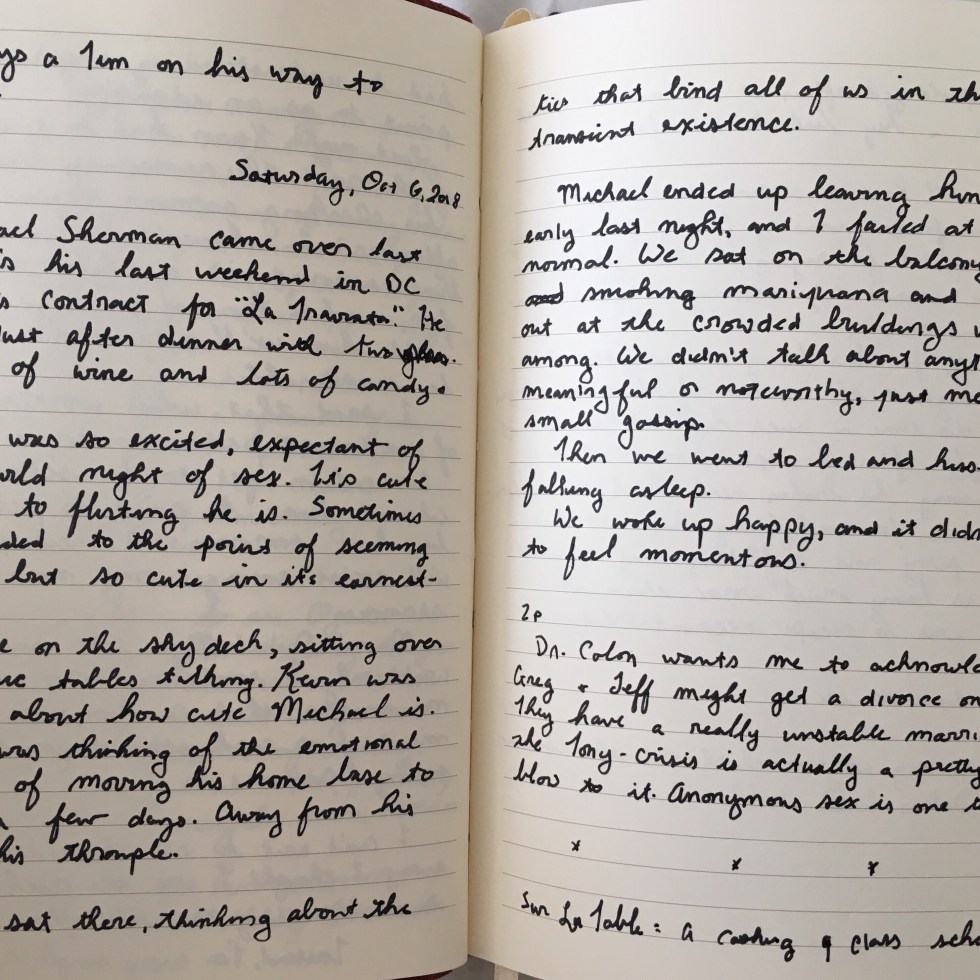 ys a 1em on his way to
Saturday, Oct 6, 2018
ael Sherman came over last
is his last weekend in DC
s contract for "La Traviata." He
ust after dinner with two
of wine and lots of candy.
was so excited, expectant of
wild night of sex. It's cute
to flirting he is. Sometimes
ded to the point of seeming
but so cute in its earnest-
e on the sky deck, sitting over
tables talking. Kevin was
about how cute Michael is.
was thinking of the emotional
of moving his home base to
a few days. Away from his
his throuple.
sat there, thinking about the
ties that bind all of us in th
transient existence.
Michael ended up leaving him
early last night, and I failed at
normal. We sat on the balcony
smoking marijuana and
out at the crowded buildings w
among. We didn't talk about anyt
meaningful or noteworthy, just me
small gossip.
Then we went to bed and kiss
falling asleep.
We woke up happy, and it didn
to feel momentous.
2p
Dr. Colon wants me to acknowle
Greg & Jeff might get a divorce on
They have a really unstable marri
the Tony-crisis is actually a pretty
blow to it. Anonymous sex is one
* * *
Sur La Table: a cooking class sch